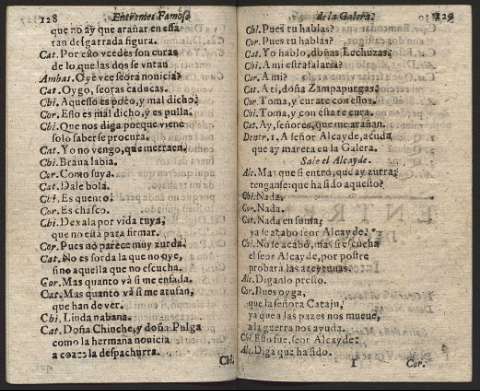 128 Entremes Famoso
que no ay que arañar en essa
tan desgarrada figura.
Cat. Por esso vcedes son curas
de lo que las dos se vntan
Ambas. Oye vce seora nouicia?
Cat. Oygo, seoras caducas.
Chi. Aquesso es poco, y mal dicho?
Cor. Esso es mal dicho, y es pulla?
Chi. Que nos diga porque viene
solo saber se procura.
Cat. Yo no vengo, que me traen.
Chi. Braua labia.
Cor. Como suya.
Cat. Dale bola.
Chi. Es quento?
Cor. Es chasco.
Chi. Dexala por vida tuya,
que no està para firmar.
Cor. Pues no parece muy zurda.
Cat. No es sorda la que no oye,
sino aquella que no escucha.
Cor. Mas quanto và si me enfada.
Cat. Mas quanto và si me atufan,
que han de ver.
Chi. Linda nabana.
Cat. Doña Chinche, y doña Pulga
como la hermana nouicia
a coces la despachurra.
Chi.
de la Galera. 129
Chi. Pues tu hablas?
Cor. Pues tu hablas?
Cat. Yo hablo, doñas Lechuzas.
Chi. A mi essa falaria?
Cor. A mi?
Cat. A ti, doña Zampapurgas?
Cor. Toma, y curate con estos.
Chi. Toma, y con esta te cura.
Cat. Ay, señores, que me arañan.
Dentr. 1. A señor Alcayde, acuda
que ay marera en la Galera.
Sale el Alcayde.
Alc. Mas que si entro, que ay zurra?
tenganse: que ha sido aquesto?
Chi. Nada.
Cor. Nada.
Cat. Nada en suma,
ya se acabò seor Alcayde.
Chi. No se acabò, mas si escucha
el seor Alcayde, por postre
probarà las azeytunas.
Alc. Diganlo presto.
Cor. Pues oyga,
que la señora Cataju,
ya que a las pazes nos mueue,
a la guerra nos ayuda.
Chi. Esso fue, seor Alcayde.
Alc. Diga que ha sido.
I Cor.